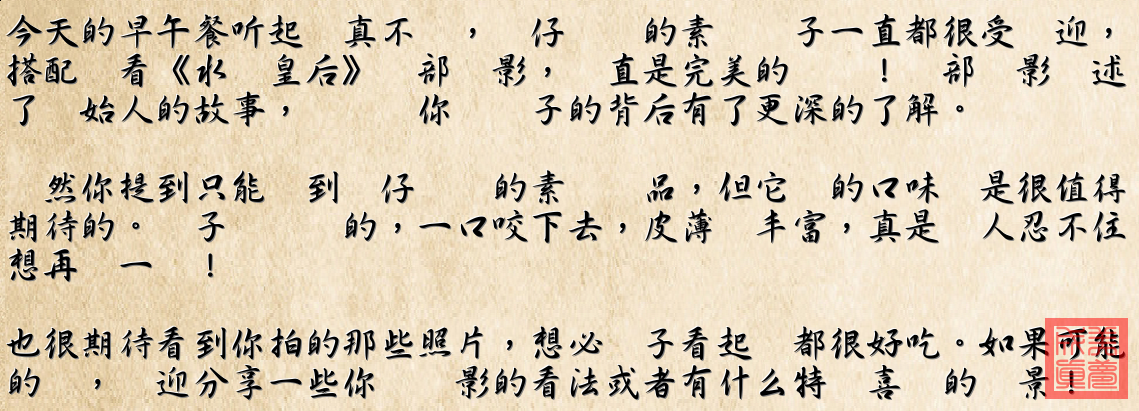 今天的早午餐听起 真不 ， 仔 的素 子一直都很受 迎，
搭配 看《水 皇后》 部 影， 直是完美的 ！ 部 影 述
了 始人的故事， 你 子的背后有了更深的了解。
然你提到只能 到 仔 的素 品，但它 的口味 是很值得
期待的。 子 的，一口咬下去，皮薄 丰富，真是 人忍不住
想再 一 ！
也很期待看到你拍的那些照片，想必 子看起 都很好吃。如果可能
的 ， 迎分享一些你 影的看法或者有什么特 喜 的 景！